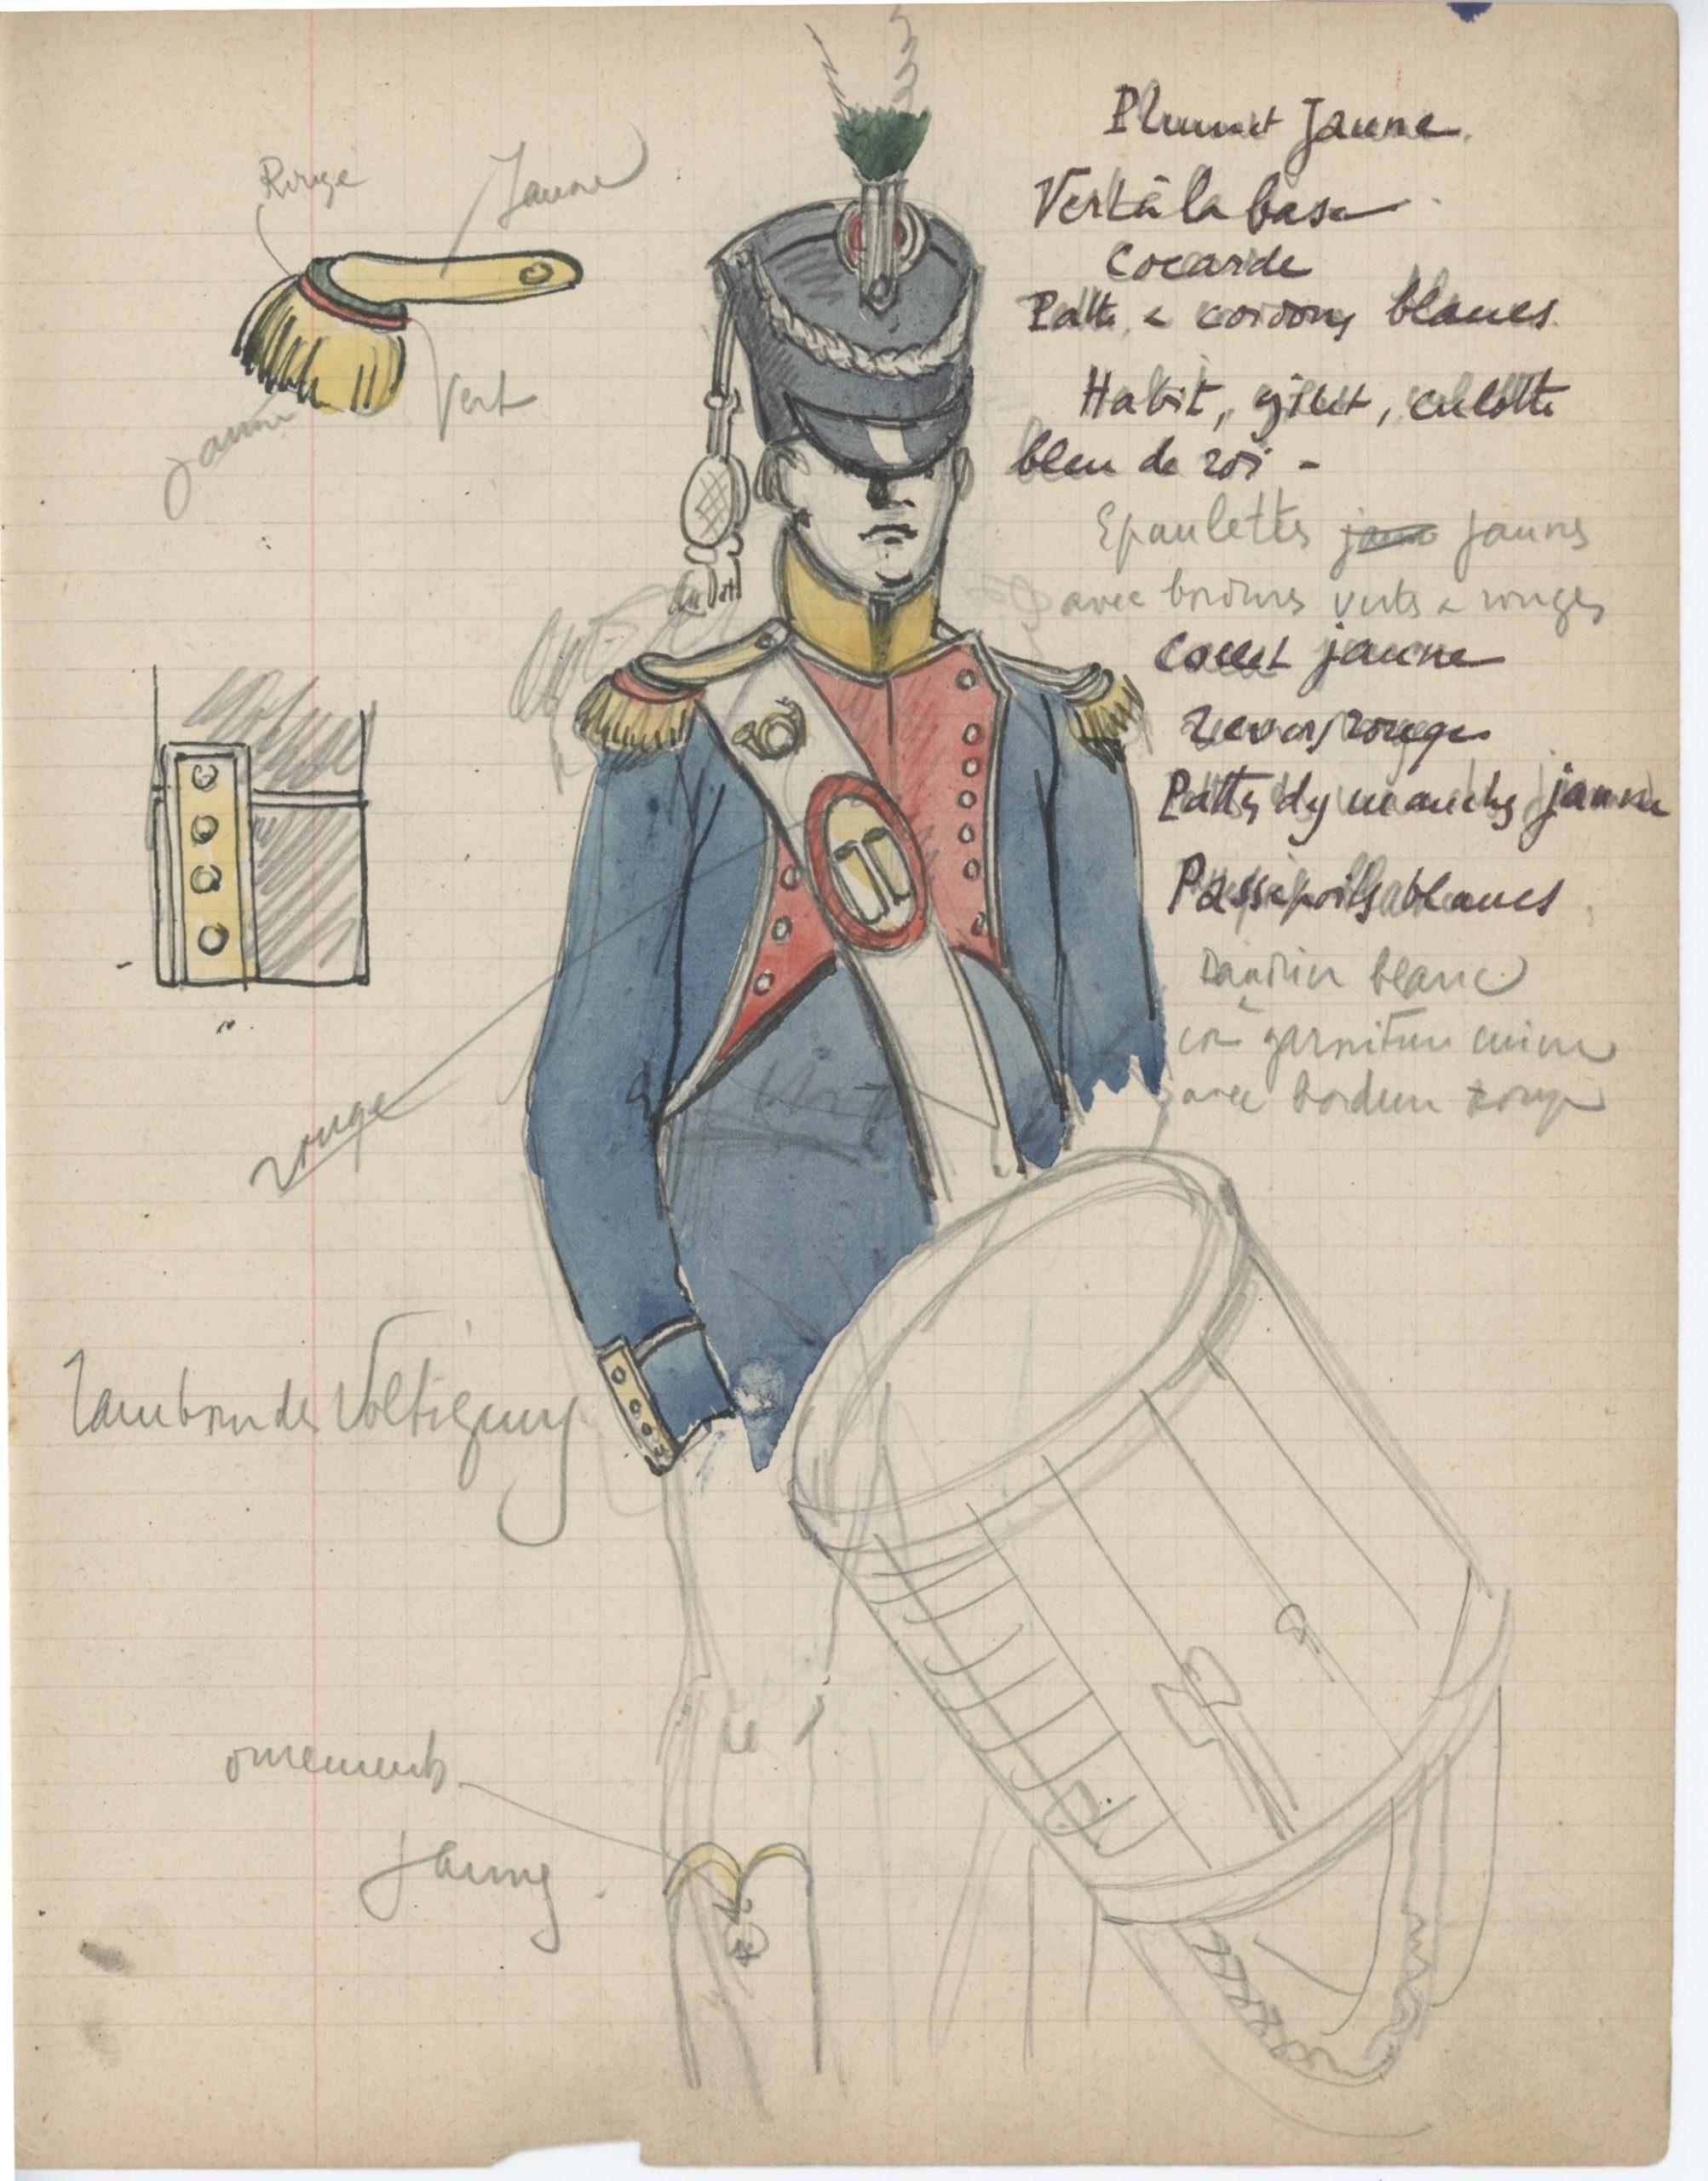 Plumet Jaune
Vert à la base
Cocarde
Patte & cordons blancs
Habit, gilet, culotte
bleu de roi -
Epaulettes jaunes
avec bordures vertes & rouges
Collet jaune
revers rouges
Pattes de manches jaunes
Passepoils blancs
blanc
garniture cuivre
avec bordure rouge
Rouge
Jaune
Vert
jaune
rouge
Tambour des Voltigeurs
ornements
jaunes